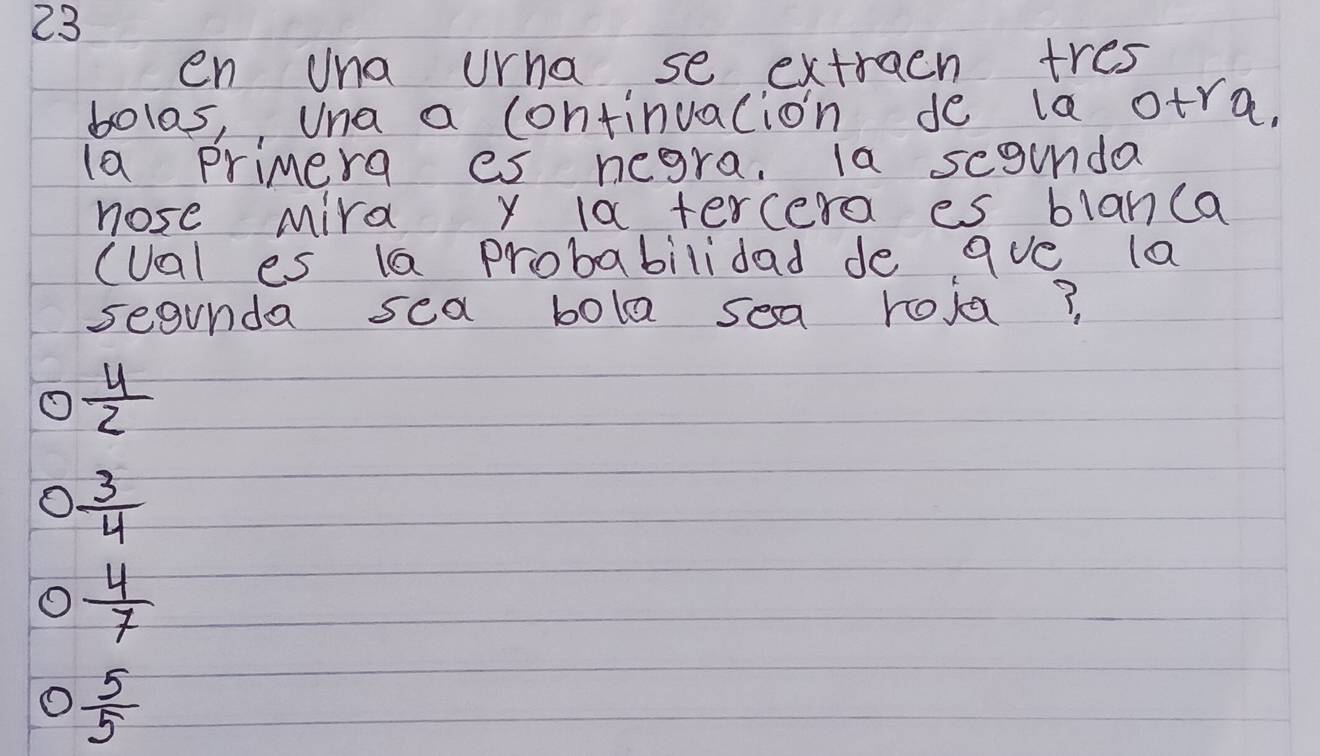 23
en una urna se extraen tres
bolas,, una a continuación de la otra.
la primera es negra. la segunda
nose mira y la tercera es blanca
cual es la probabilidad de que la
segunda sea bola sea roja?
4/2
3/4
4/7
5/5